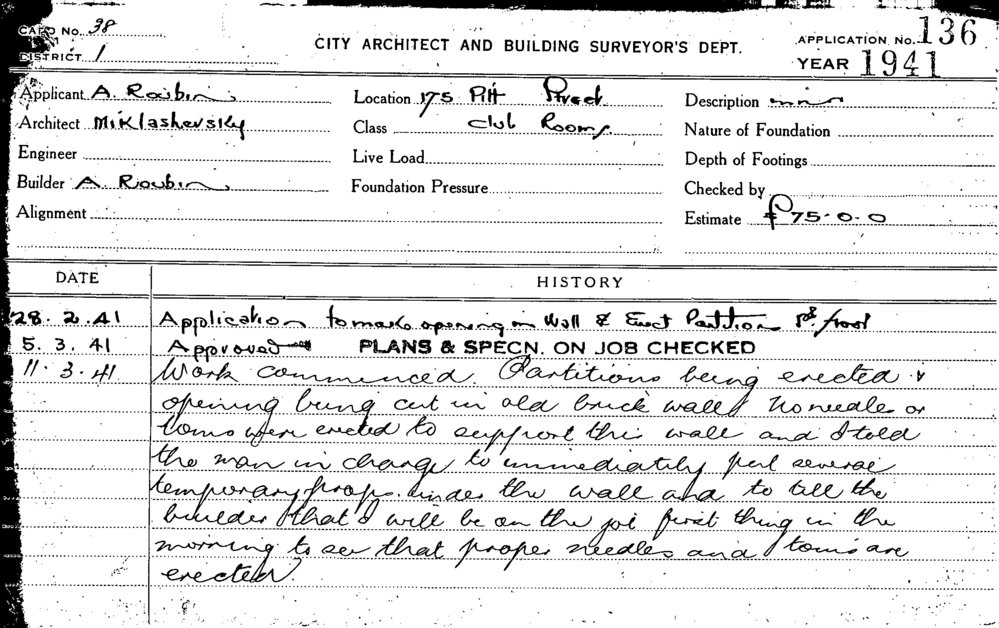 CARD No. 38
DISTRICT 1
CITY ARCHITECT AND BUILDING SURVEYOR'S DEPT.
APPLICATION No. 136
YEAR 1941
Applicant A. Roubin
Architect Miklashevsky
Engineer
Builder A. Roubin
Alignment
Location 175 Pitt Street
Class Club Rooms
Live Load
Foundation Pressure
Description
Nature of Foundation
Depth of Footings
Checked by
Estimate £75-0-0
DATE HISTORY
28.2.41 Application to make opening in Wall & Erect Partition floor
5.3.41 Approved PLANS & SPECN. ON JOB CHECKED
11.3.41 Work commenced. Partitions being erected &
opening being cut in old brick wall. No needles or
toms were erected to support this wall and I told
the man in charge to immediately put several
temporary props under the wall and to tell the
builder that I will be on the job first thing in the
morning to see that proper needles and toms are
erected.